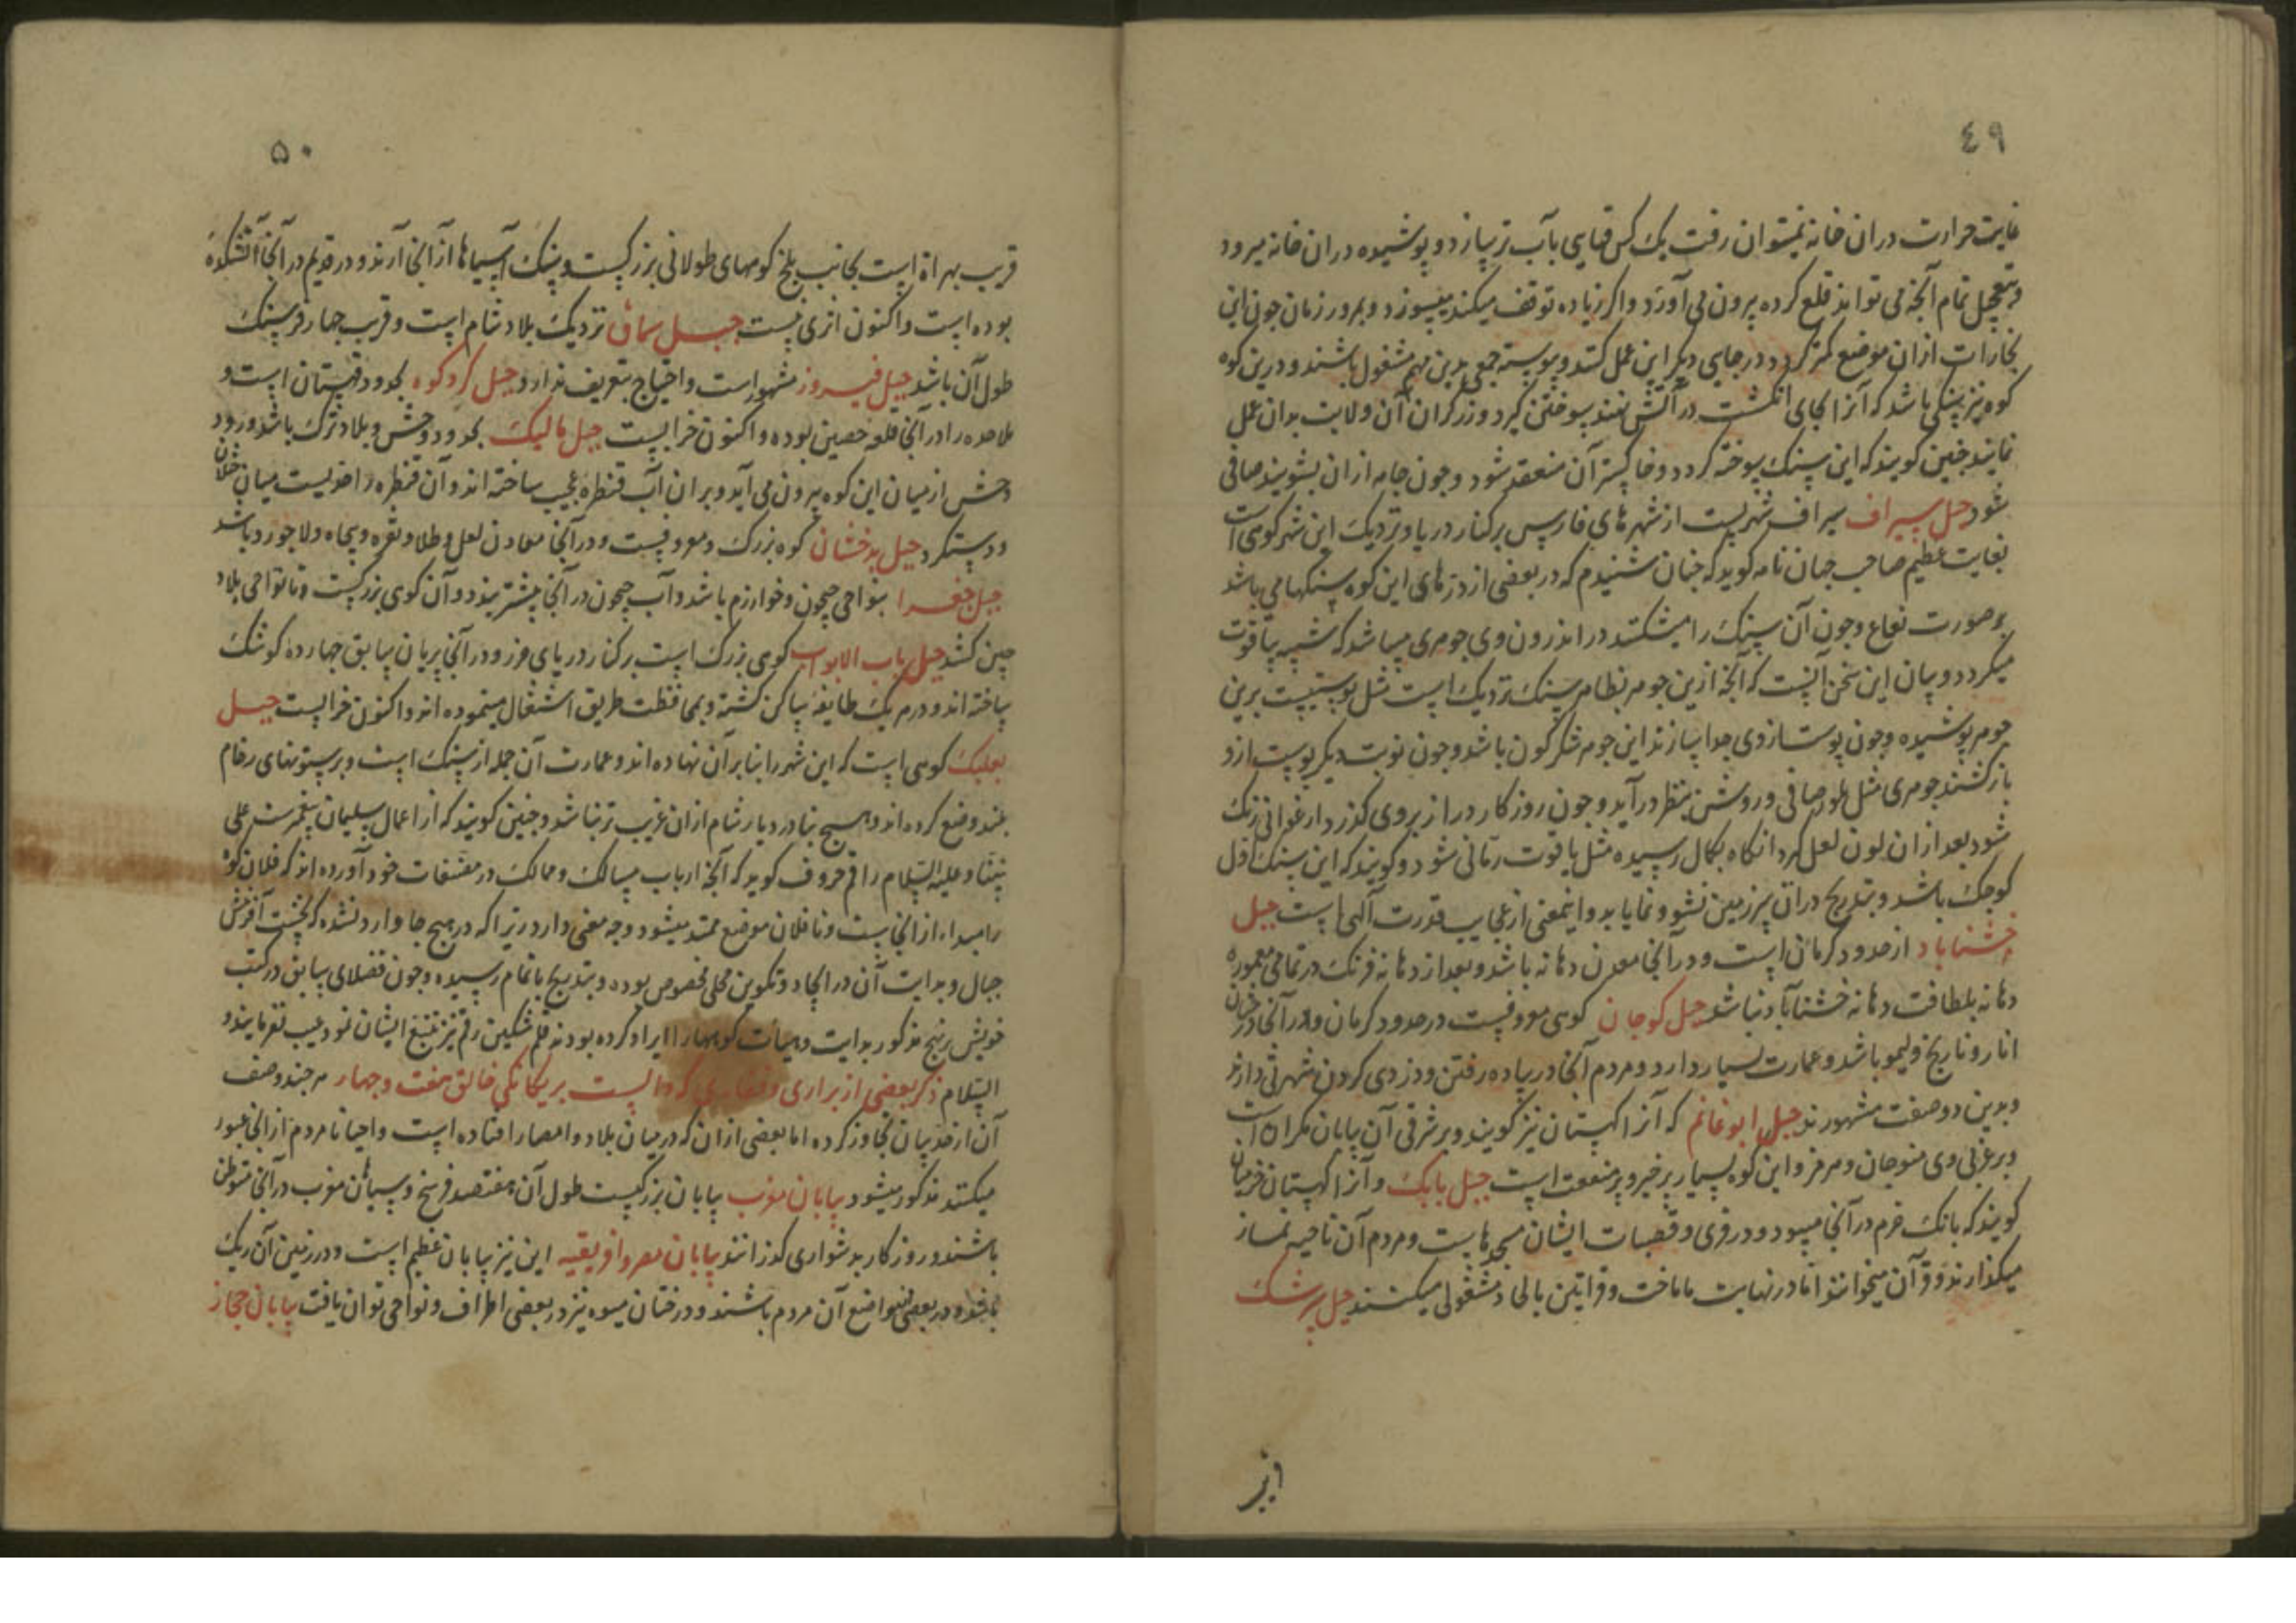 ٤٩
غایت حرارت دران خانه نمیتوان رفت یک کس قبایی بآب تر سازد و پوشیده دران خانه میرود
وبتعجیل تمام آنچه می تواند قلع کرده بیرون می آورد واکر زیاده توقف میکند میسوزد وبمرور زمان چون این
بخارات ازان موضع کمتر کردد در جایی دیکر این عمل کنند وپیوسته جمعی بدین مهم مشغول باشند ودرین کوه
کوه نیز سنکی باشد که آنرا بجای انکشت در آتش نهند سوختن کیرد وزرکران آن ولایت بدان عمل
نمایند چنین کویند که این سنک سوخته کردد وخاکستر آن منعقد شود وچون جامه ازان بشویند صافی
شود جبل سیراف سیراف شهریست از شهرهای فارس برکنار دریا ونزدیک این شهر کوهی است
بغایت عظیم صاحب جهان نامه کوید که چنان شنیدم که در بعضی از درهای این کوه سنکها می باشد
بر صورت نفاع وچون آن سنک را میشکنند در اندرون وی جوهری میباشد که شبیه بیاقوت
میکردد وبیان این سخن آنست که آنچه ازین جوهر بظاهر سنک نزدیک است مثل پوستیست برین
جوهر پوشیده وچون پوست ازوی جدا سازند این جوهر شکر کون باشد وچون نوبت دیکر پوست ازو
باز کشند جوهری مثل بلور صافی وروشن بنظر در آید وچون روزکار دراز بروی کذرد ارغوانی رنک
شود بعد ازان لون لعل کیرد انکاه بکمال رسیده مثل یاقوت رمانی شود وکویند که این سنک اول
کوچک باشد وبتدریج دران سرزمین نشو ونما یابد واینمعنی از عجایب قدرت آلهی است جبل
خشناباد از حدود کرمان است ودر آنجا معدن دهانه باشد وبعد از دهانه فرنک در تمامی معموره
دهانه بلطافت دهانه خشناباد نباشد جبل کوجان کوهی معروفیست در حدود کرمان ودر آنجا درختان
انار ونارنج ولیمو باشد وعمارت بسیار دارد ومردم آنجا در پیاده رفتن ودزدی کردن شهرتی دارند
وبدین دو صفت مشهورند جبل ابو غانم که آنرا کهستان نیز کویند وبر شرقی آن بیابان مکران است
وبر غربی وی منوجان وهرمز واین کوه بسیار پر خیر وپر منفعت است جبل بابک وآنرا کهستان خرمیان
کویند که بابک خرم در آنجا میبود ودر قری وقصبات ایشان مسجدهاست ومردم آن ناحیه نماز
میکذارند وقرآن میخوانند اما در نهایت باباحت ومشغولی میکنند جبل برشک
قریب
٥٠
قریب بهراة است بجانب بلخ کوههای طولانی بزرکیست وسنک آسیاها از آنجا آرند ودر قدیم در آنجا آتشکده
بوده است واکنون اثری نیست جبل سماق نزدیک بلاد شام است وقریب چهار فرسنک
طول آن باشد جبل فیروز مشهور است واحتیاج بتعریف ندارد جبل کردکوه بحدود قهستان است و
ملاحده را در آنجا قلعه حصین بوده واکنون خرابست جبل مالیک بحدود وخش وبلاد ترک باشد ورود
وخش از میان این کوه بیرون می آید وبران آب قنطره عجیب ساخته اند وآن قنطره واقعیست میان ختلان
وویشکرد جبل بدخشان کوه بزرک ومعروفیست ودر آنجا معادن لعل وطلا ونقره وسیماه ولاجورد باشد
جبل جغرا بنواحی جیحون وخوارزم باشد وآب جیحون در آنجا بیشتر بندد وآن کوهی بزرکیست وتا نواحی بلاد
چین کشد جبل باب الابواب کوهی بزرک است برکنار دریای خزر ودر آنجا پریان سابق چهارده کوشک
ساخته اند ودر هر یک طایفه ساکن کشته وبمحافظت طریق اشتغال مینموده اند واکنون خرابست جبل
بعلبک کوهی است که این شهر را بنا بر آن نهاده اند وعمارت آن جمله از سنک است وبر ستونهای رخام
بلند وضع کرده اند وهیچ بنا در دیار شام ازان غریب تر نباشد وچنین کویند که از اعمال سلیمان پیغمبرست علی
نبینا وعلیه السلام راقم حروف کوید که آنچه ارباب مسالک وممالک در مصنفات خود آورده اند که فلان کوه
را مبدأ از آنجاست وتا فلان موضع ممتد میشود وجه معنی دارد زیرا که در هیچ جا وارد نشده که نخست آفرینش
جبال وبدایت آن در ایجاد وتکوین محلی مخصوص بوده وبتدریج باتمام رسیده وچون فضلای سابق در کتب
خویش برنهج مذکور بدایت وهیأت کوهها را ایراد کرده بودند قلم شکین رقم نیز تتبع ایشان نمود عیب نفرمایند و
السلام ذکر بعضی از براری وقفاری که دالست بر یکانکی خالق هفت وچهار هر چند وصف
آن از حد بیان تجاوز کرده اما بعضی ازان که درمیان بلاد وامصار افتاده است واحیانا مردم از آنجا عبور
میکنند مذکور میشود بیابان مغرب بیابان بزرکیست طول آن هفتصد فرسخ وسیاهان مغرب در آنجا متوطن
باشند وروزکار بدشواری کذرانند بیابان مصر وافریقیه این نیز بیابان عظیم است ودر زمین آن ریک
باشد ودر بعضی مواضع آن مردم باشند ودرختان میوه نیز در بعضی اطراف ونواحی توان یافت بیابان حجاز